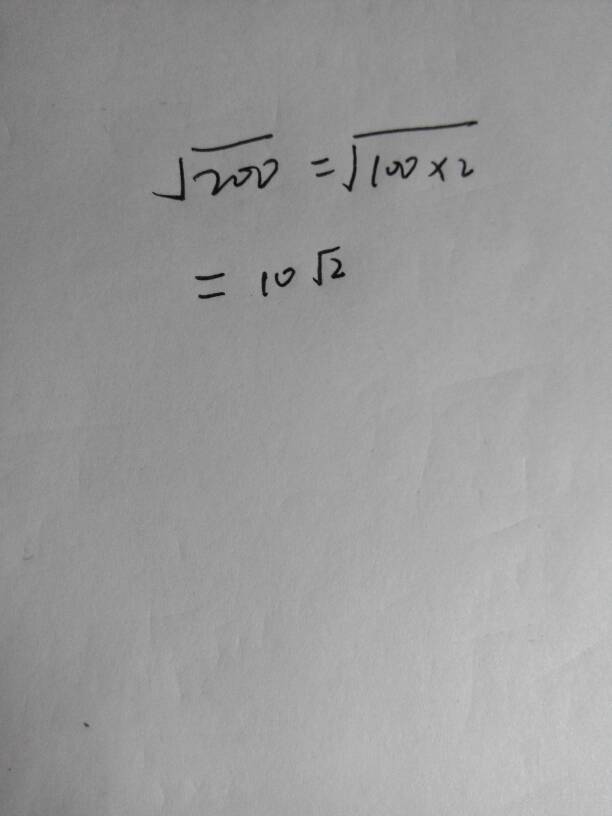 √200 = √100×2
= 10√2